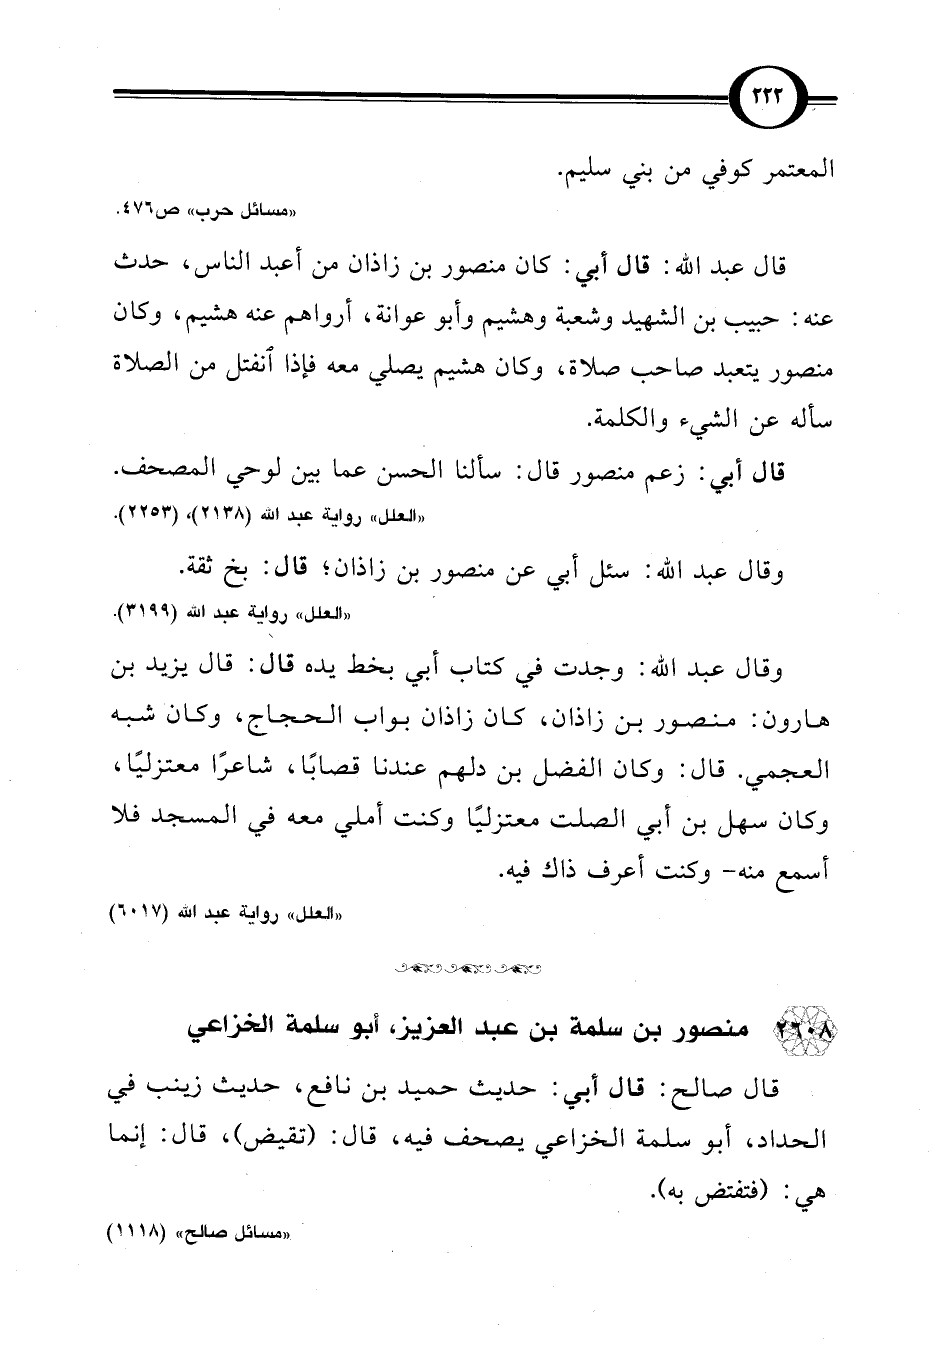 ٢٢٢
المعتمر كوفي من بني سليم.
«مسائل حرب» ص٤٧٦.
قال عبد الله: قال أبي: كان منصور بن زاذان من أعبد الناس، حدث
عنه: حبيب بن الشهيد وشعبة وهشيم وأبو عوانة، أرواهم عنه هشيم، وكان
منصور يتعبد صاحب صلاة، وكان هشيم يصلي معه فإذا ٱنفتل من الصلاة
سأله عن الشيء والكلمة.
قال أبي: زعم منصور قال: سألنا الحسن عما بين لوحي المصحف.
«العلل» رواية عبد الله (٢١٣٨)، (٢٢٥٣).
وقال عبد الله: سئل أبي عن منصور بن زاذان؛ قال: بخ ثقة.
«العلل» رواية عبد الله (٣١٩٩).
وقال عبد الله: وجدت في كتاب أبي بخط يده قال: قال يزيد بن
هارون: منصور بن زاذان، كان زاذان بواب الحجاج، وكان شبه
العجمي. قال: وكان الفضل بن دلهم عندنا قصابًا، شاعرًا معتزليًا،
وكان سهل بن أبي الصلت معتزليًا وكنت أملي معه في المسجد فلا
أسمع منه- وكنت أعرف ذاك فيه.
«العلل» رواية عبد الله (٦٠١٧)
٢٦٠٨ منصور بن سلمة بن عبد العزيز، أبو سلمة الخزاعي
قال صالح: قال أبي: حديث حميد بن نافع، حديث زينب في
الحداد، أبو سلمة الخزاعي يصحف فيه، قال: (تقيض)، قال: إنما
هي: (فتفتض به).
«مسائل صالح» (١١١٨)